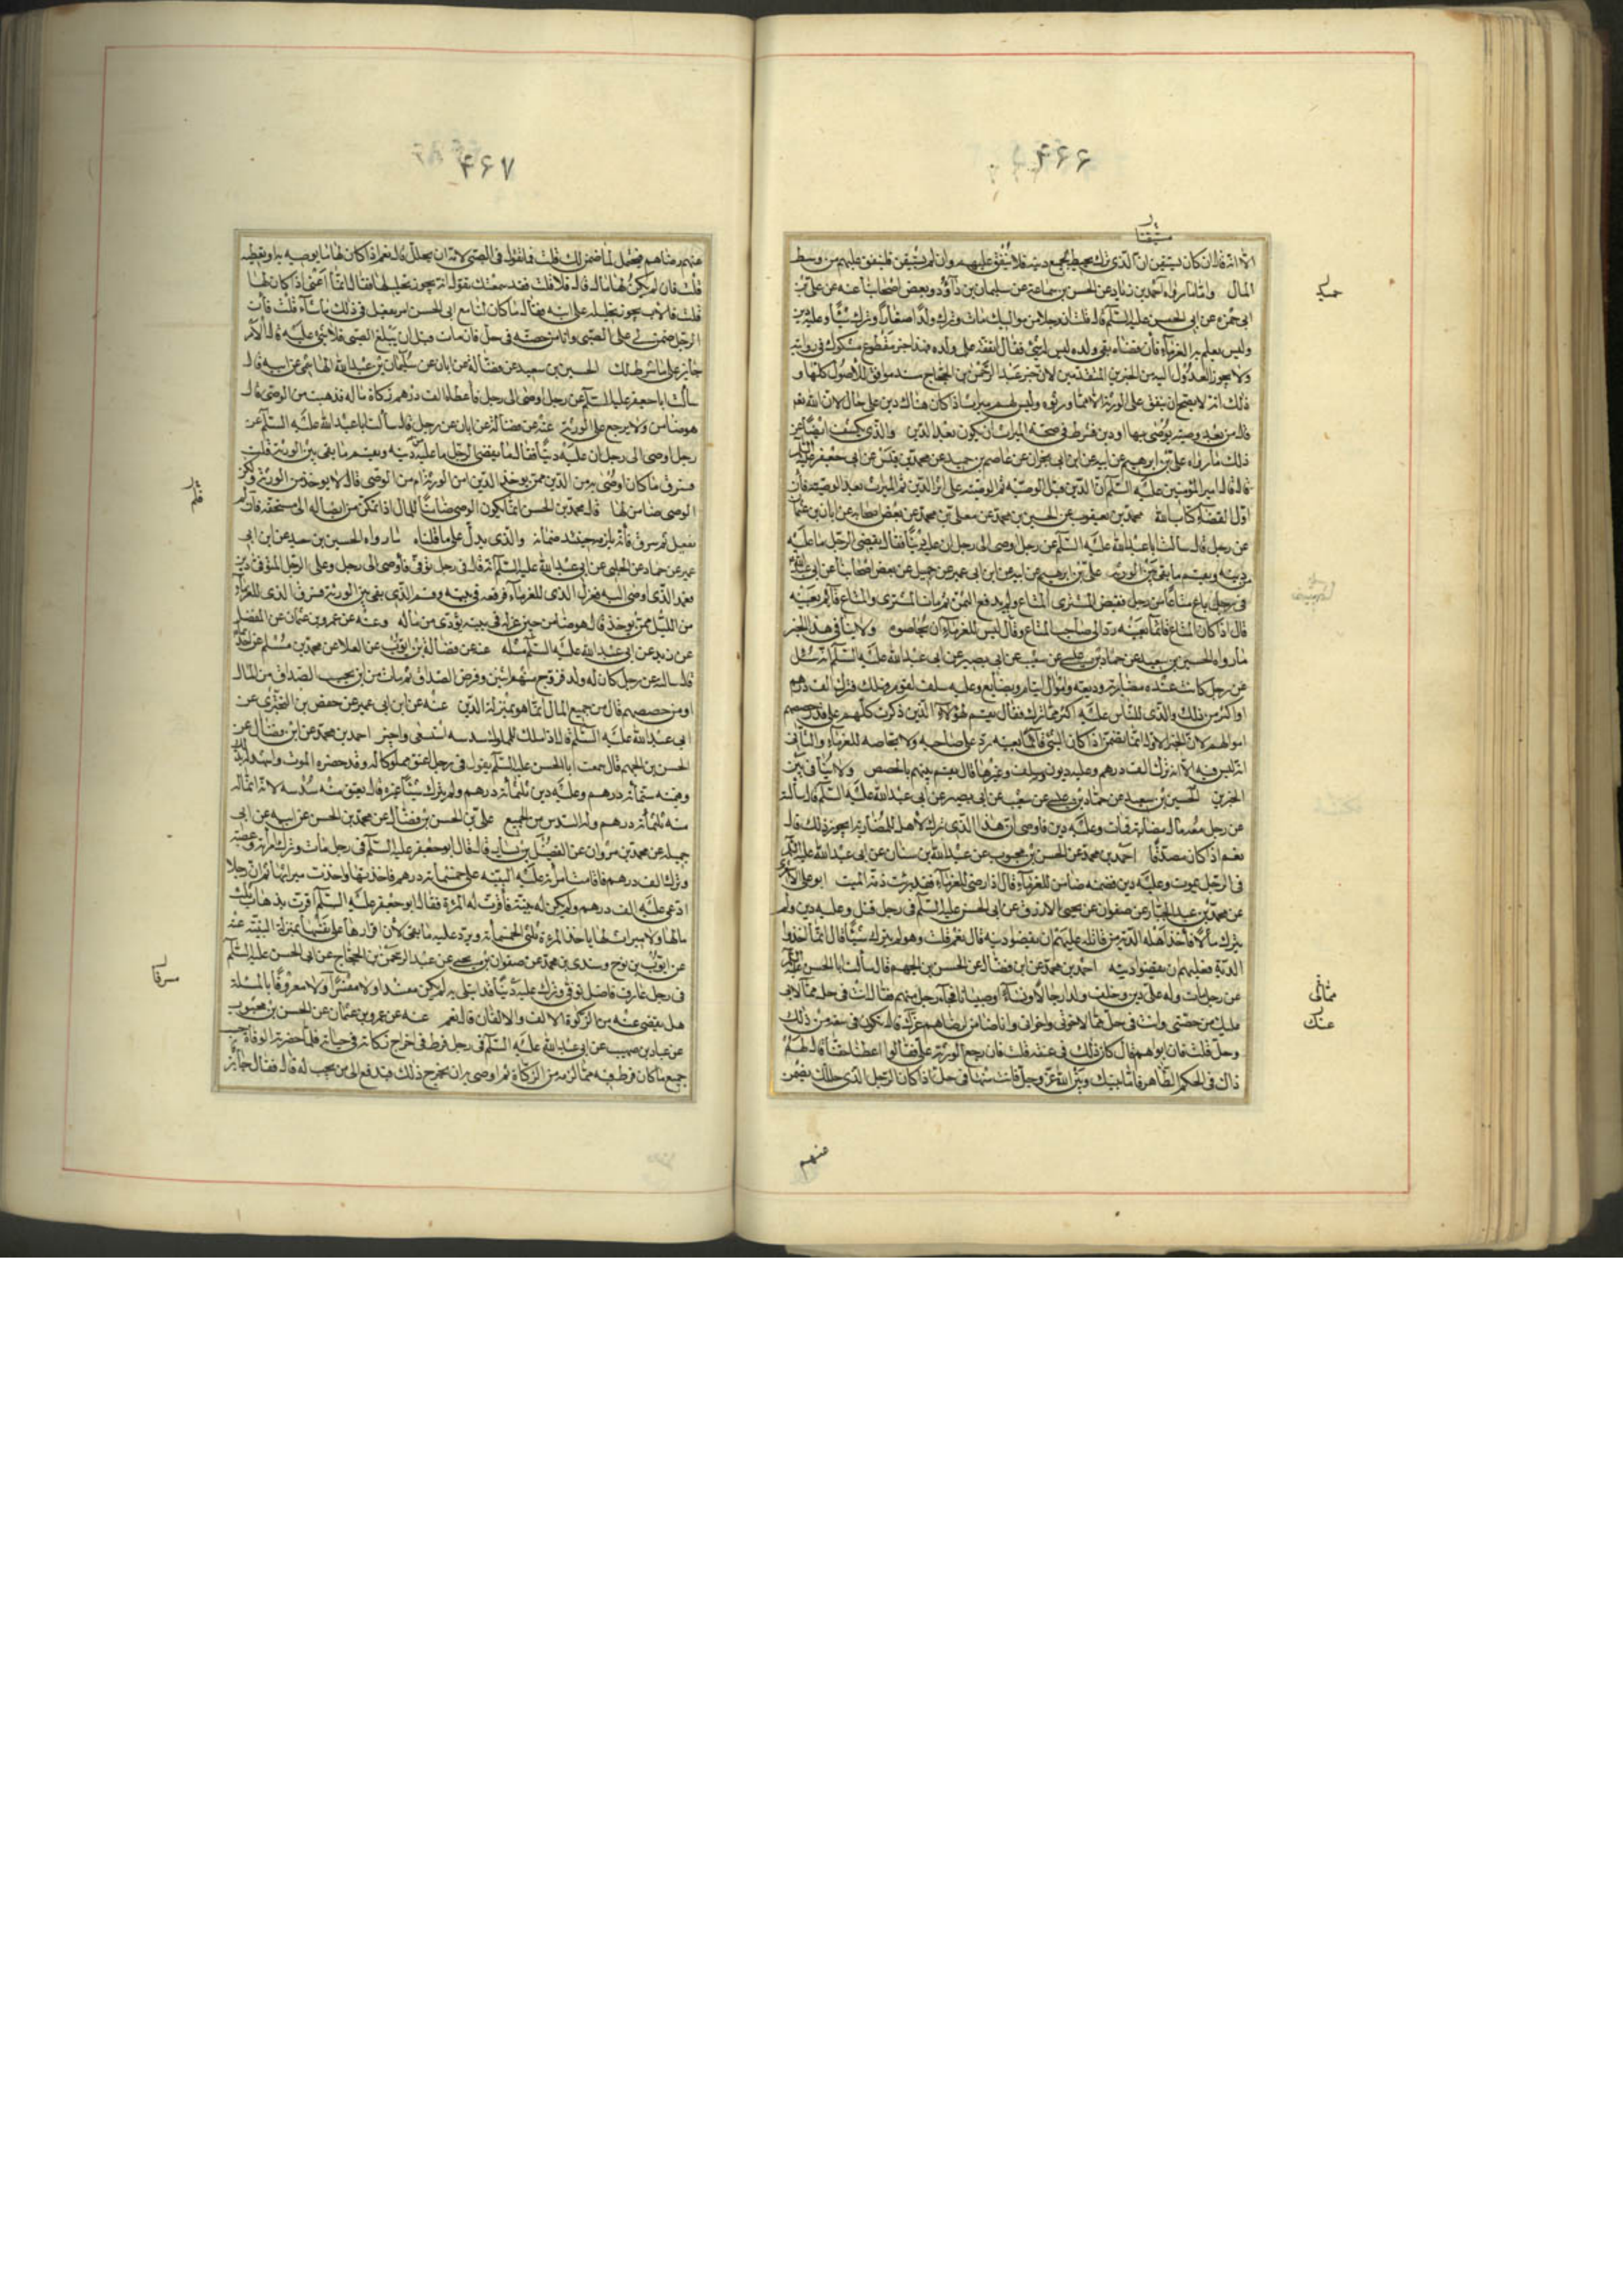 ۴۶۶
الا انه قال ان كان يستيقن ان الذى ترك يحيط بجميع دينه فلا ينفق عليهم وان لم يستيقن فلينفق عليهم من وسط
المال واما ما رواه احمد بن زياد عن الحسن بن سماعة عن سليمان بن داود وبعض اصحابنا عنه عن على بن
ابى حمزة عن ابى الحسن عليه السلم قال قلت ان رجلا من مواليك مات وترك ولدا صغارا وترك شيئا وعليه دين
وليس يعلم به الغرماء فان قضاه بقى ولده ليس لهم شئ فقال انفقه على ولده فهذا خبر مقطوع مشكوك فى روايته
ولا يجوز العدول اليه من الخبرين المتقدمين لان خبر عبد الرحمن بن الحجاج مسند موافق للاصول كلها و
ذلك انه لا يصح ان ينفق على الورثة الا مما ورثوه وليس لهم ميراث اذا كان هناك دين على حال لان الله تعالى
قال من بعد وصية يوصى بها او دين فشرط فى صحة الميراث ان يكون بعد الدين والذى يكشف ايضا عن
ذلك ما رواه على بن ابرهيم عن ابيه عن ابن ابى نجران عن عاصم بن حميد عن محمد بن قيس عن ابى جعفر عليه السلم
قال قال امير المؤمنين عليه السلم ان الدين قبل الوصية ثم الوصية على اثر الدين ثم الميراث بعد الوصية فان
اول القضاء كتاب الله محمد بن يعقوب عن الحسين بن محمد عن معلى بن محمد عن بعض اصحابه عن ابان بن عثمان
عن رجل قال سالت ابا عبد الله عليه السلم عن رجل اوصى الى رجل ان عليه دينا فقال يقضى الرجل ما عليه
دينه ويقسم ما بقى بين الورثة على بن ابرهيم عن ابيه عن ابن ابى عمير عن جميل عن بعض اصحابنا عن ابى عبد الله
فى رجل باع متاعا من رجل فقبض المشترى المتاع ولم يدفع الثمن ثم مات المشترى والمتاع قائم بعينه
قال اذا كان المتاع قائما بعينه رد الى صاحب المتاع وقال ليس للغرماء ان يحاصوه ولا ينافى هذا الخبر
ما رواه الحسين بن سعيد عن حماد بن عيسى عن شعيب عن ابى بصير عن ابى عبد الله عليه السلم انه سئل
عن رجل كانت عنده مضاربة ووديعة واموال ايتام وبضايع وعليه سلف لقوم فهلك فترك الف درهم
او اكثر من ذلك والذى للناس عليه اكثر مما ترك فقال يقسم لهؤلاء الذين ذكرت كلهم على قدر حصصهم
اموالهم لان الخبر الاول انما يضمن اذا كان الشئ قائما بعينه رد على صاحبه ولا يحاصه للغرماء والثانى
انه ليس فيه الا انه ترك الف درهم وعليه ديون وسلف وغيرها قال يقسم بينهم بالحصص ولا تنافى بين
الخبرين الحسين بن سعيد عن حماد بن عيسى عن شعيب عن ابى بصير عن ابى عبد الله عليه السلم قال سالته
عن رجل معه مال مضاربة فمات وعليه دين فاوصى ان هذا الذى ترك لاهل المضاربة ايجوز ذلك قال
نعم اذا كان مصدقا احمد بن محمد عن الحسن بن محبوب عن عبد الله بن سنان عن ابى عبد الله عليه السلم
فى الرجل يموت وعليه دين فضمنه ضامن للغرماء قال اذا رضى للغرماء فقد برئت ذمة الميت ابو على الاشعرى
عن محمد بن عبد الجبار عن صفوان عن يحيى الازرق عن ابى الحسن عليه السلم فى رجل قتل وعليه دين ولم
يترك مالا فاخذ اهله الدية من قاتله عليهم ان يقضوا دينه قال نعم قلت وهو لم يترك شيئا قال انما اخذوا
الدية فعليهم ان يقضوا دينه احمد بن محمد عن ابن فضال عن الحسن بن الجهم قال سالت ابا الحسن عليه السلم
عن رجل مات وله على دين وخلف ولدا رجالا ونساء وصبيانا فجاء رجل منهم فقال انت فى حل مما لابى
عليك من حصتى وانت فى حل مما لاخوتى واخواتى وانا ضامن لرضاهم عنك قال تكون فى سعة من ذلك
وحل قلت فان لم يعطهم قال كان ذلك فى عنقه قلت فان رجع الورثة على فقالوا اعطنا حقنا قال لهم
ذاك فى الحكم الظاهر فاما بينك وبين الله عز وجل فانت منها فى حل اذا كان الرجل الذى حللك يضمن
منهم
۴۶۷
عنهم رضاهم فيحمل لما ضمن لك قلت فما تقول فى الصبى لامه ان تحلل قال نعم اذا كان لها ما ترضيه به او تعطيه
قلت فان لم يكن لها مال قال فلا قلت فقد سمعتك تقول انه يجوز تحليلها فقال انما اعنى اذا كان لها
قلت فالاب يجوز تحليله على ابنه فقال ما كان لنا مع ابى الحسن امر يفعل فى ذلك ما شاء قلت فان
الرجل ضمن لى على الصبى وانا من حصته فى حل فان مات قبل ان يبلغ الصبى فلا شئ عليه قال الامر
جايز على ما شرط لك الحسين بن سعيد عن فضالة عن ابان عن سليمان بن عبد الله الهاشمى عن ابيه قال
سالت ابا جعفر عليه السلم عن رجل اوصى الى رجل فاعطاه الف درهم زكاة ماله فذهبت من الوصى قال
هو ضامن ولا يرجع على الورثة عنه عن فضالة عن ابان عن رجل قال سالت ابا عبد الله عليه السلم عن
رجل اوصى الى رجل ان عليه دينا فقال يقضى الرجل ما عليه من دينه ويقسم ما بقى بين الورثة قلت
فسرق ما كان اوصى به من الدين ممن يؤخذ الدين امن الورثة ام من الوصى قال لا يؤخذ من الورثة ولكن
الوصى ضامن لها قال محمد بن الحسن انما يكون الوصى ضامنا للمال اذا تمكن من ايصاله الى مستحقه فان لم
يفعل ثم سرق فانه يلزمه حينئذ ضمانه والذى يدل على ما قلناه ما رواه الحسين بن سعيد عن ابن ابى
عمير عن حماد عن الحلبى عن ابى عبد الله عليه السلم انه قال فى رجل توفى فاوصى الى رجل وعلى الرجل المتوفى دين
فعمد الذى اوصى اليه فعزل الذى للغرماء فرفعه فى بيته وقسم الذى بقى بين الورثة فسرق الذى للغرماء
من الليل ممن يؤخذ قال هو ضامن حين عزله فى بيته يؤدى من ماله وعنه عن عمرو بن عثمان عن المفضل
عن زيد عن ابى عبد الله عليه السلم مثله عنه عن فضالة بن ايوب عن العلا عن محمد بن مسلم عن احدهما
قال سالته عن رجل كان له ولد فزوج منهم اثنين وفرض الصداق ثم مات من اين يحسب الصداق من المال
او من حصصهم قال من جميع المال انما هو بمنزلة الدين عنه عن ابن ابى عمير عن حفص بن البخترى عن
ابى عبد الله عليه السلم قال اذا ملك المملوك سدسه استسعى واجيز احمد بن محمد عن ابن فضال عن
الحسن بن الجهم قال سمعت ابا الحسن عليه السلم يقول فى رجل اعتق مملوكا له وقد حضره الموت واشهد له بذلك
وقيمته ستمائة درهم وعليه دين ثلثمائة درهم ولم يترك شيئا غيره قال يعتق منه سدسه لانه انما له
منه ثلثمائة درهم وله السدس من الجميع على بن الحسن بن فضال عن محمد بن الحسن عن ابيه عن ابى
جميلة عن محمد بن مروان عن الفضيل بن يسار قال قال ابو جعفر عليه السلم فى رجل مات وترك امراته وعصبته
وترك الف درهم فاقامت امراته عليه البينة على خمسمائة درهم فاخذتها واخذت ميراثها ثم ان رجلا
ادعى عليه الف درهم ولم يكن له بينة فاقرت له المرءة فقال ابو جعفر عليه السلم اقرت بذهاب ثلث
مالها ولا ميراث لها ياخذ المرءة ثلثى الخمسمائة ويرد عليه ما بقى لان اقرارها على نفسها بمنزلة البينة عنه
عن ايوب بن نوح وسندى بن محمد عن صفوان بن يحيى عن عبد الرحمن بن الحجاج عن ابى الحسن عليه السلم
فى رجل عارف فاضل توفى وترك عليه دينا قد ابتلى به لم يكن مفسدا ولا مسرفا ولا معروفا بالمسئلة
هل يقضى عنه من الزكوة الالف والالفان قال نعم عنه عن عمرو بن عثمان عن الحسن بن محبوب
عن عباد بن صهيب عن ابى عبد الله عليه السلم فى رجل فرط فى اخراج زكاته فى حياته فلما حضرته الوفاة حسب
جميع ما كان فرط فيه مما لزمه من الزكاة ثم اوصى به ان يخرج ذلك فيدفع الى من يجب له قال فقال جائز